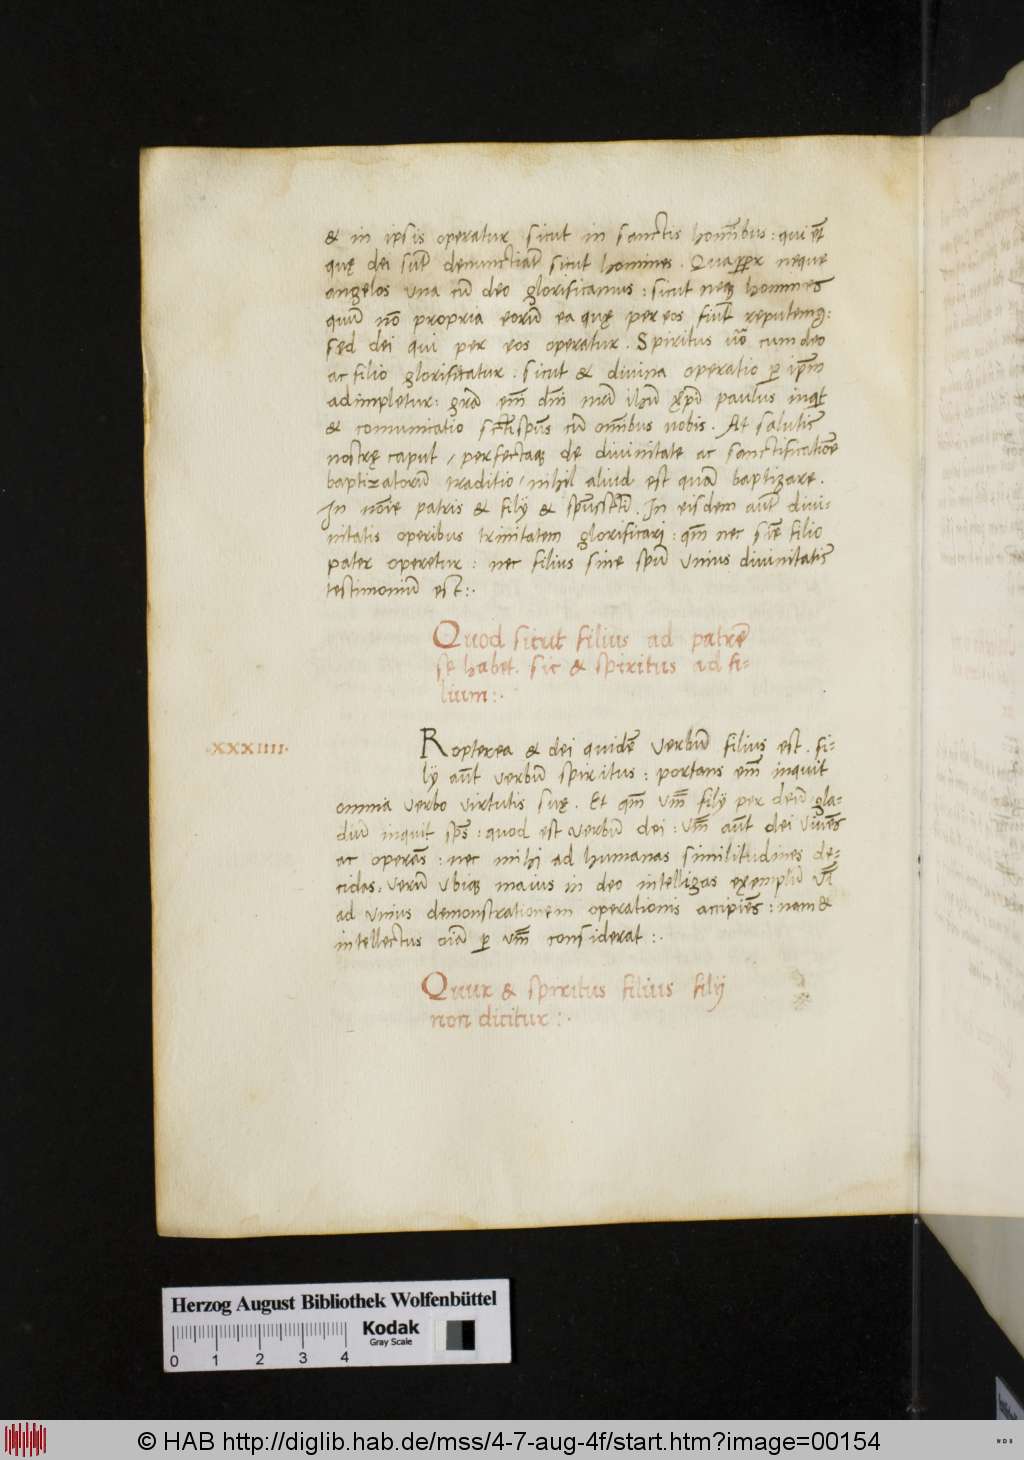 & in ipsis operatur sicut in sanctis hoīnibus: qui & eͣ
quę dei sūt denunctiāt sicut homines. Quappr neque
angelos una cū deo glorificamus: sicut neqȝ homines
quū nō propria eorū ea quę per eos fiūt reputemꝰ:
sed dei qui per eos operatur. Spiritus ūo cum deo
ac filio glorificatur: sicut & divina operatio ꝑ ip̄m
adimpletur: grā em̄ dn̄i nr̄i ihū xp̄i paulus inqt
& comunicatio sctīspūs cū om̄ibus nobis. At salutis
nostrę caput / perfectaqȝ de divinitate ac sanctificatiōe
baptizatorū traditio / nihil aliud est quā baptizare.
In nōie patris & filij & spūssctī. In eisdem aūt divi-
nitatis operibus trinitatem glorificari: qm̄ nec sīe filio
pater operetur: nec filius sine spū unius divinitatis
testimoniū est:.
Quod sicut filius ad patrē
se habet. sic & spiritus ad fi-
lium:.
·XXXIIII·
Ropterea & dei quidē verbū filius est. fi-
lij aūt verbū spiritus: portans em̄ inquit
omnia verbo virtutis suę. Et qm̄ vm̄ filij per deiū gla-
diū inquit spūs: quod est verbū dei: vm̄ aūt dei vivēs
ac operās: nec mihi ad humanas similitudines de-
cidas: verū ubiqȝ maius in deo intelligas exemplū ut
ad unius demonstrationem operationis accipiēs: nam &
intellectus oīa ꝑ vm̄ considerat:.
Quur & spiritus filius filij
non dicitur:.
Herzog August Bibliothek Wolfenbüttel
0 1 2 3 4
Kodak
Gray Scale
© HAB http://diglib.hab.de/mss/4-7-aug-4f/start.htm?image=00154